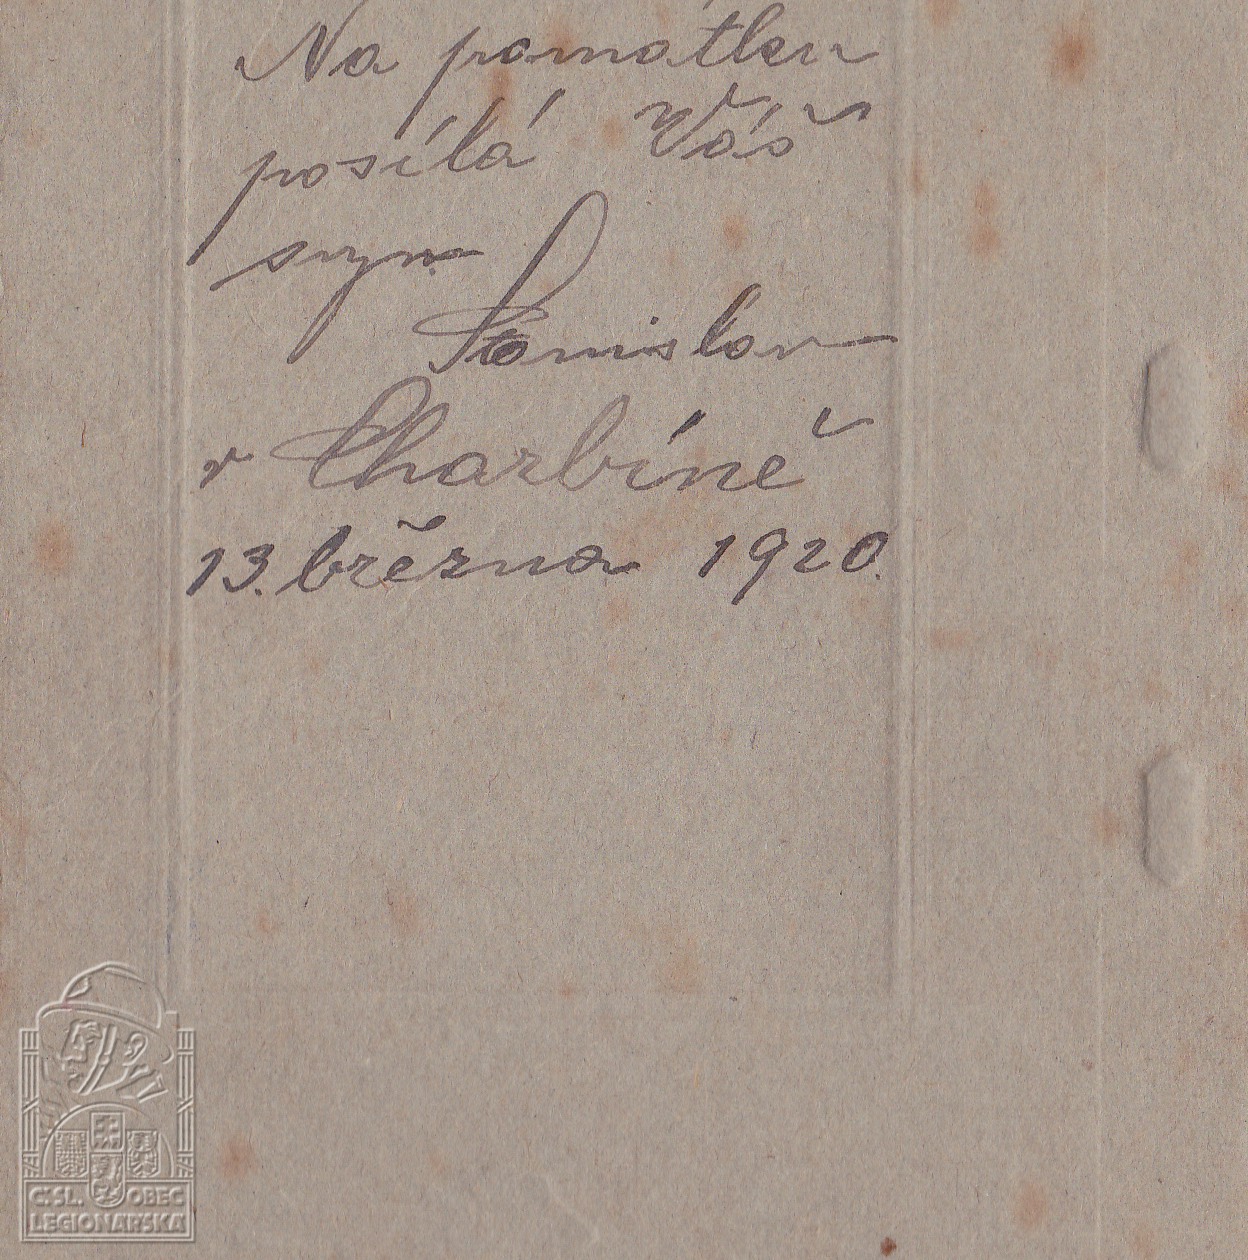 Na pomátku
posílá Váš
syn
Stanislav
v Charbíně
13. března 1920.
Č.SL. OBEC
LEGIONÁŘSKÁ